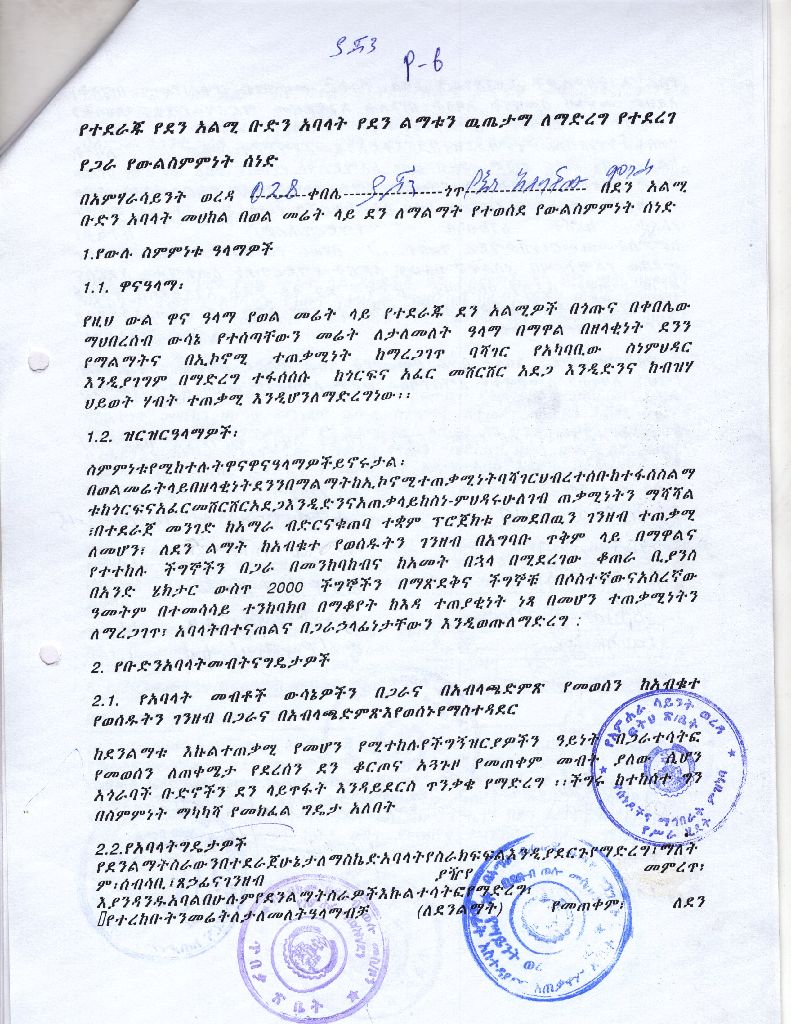 P-6
የተደራጁ የደን አልሚ ቡድን አባላት የደን ልማቱን ዉጤታማ ለማድረግ የተደረገ
የጋራ የውልስምምነት ሰነድ
በአምሃራሳይንት ወረዳ 028 ቀበሌ ጎጥ በደን አልሚ
ቡድን አባላት መሀከል በወል መሬት ላይ ደን ለማልማት የተወሰደ የውልስምምነት ሰነድ
1.የውሉ ስምምነቱ ዓላማዎች
1.1. ዋናዓላማ፡
የዚህ ውል ዋና ዓላማ የወል መሬት ላይ የተደራጁ ደን አልሚዎች በጎጡና በቀበሌው
ማህበረሰብ ውሳኔ የተሰጣቸውን መሬት ለታለመለት ዓላማ በማዋል በዘላቂነት ደንን
የማልማትና በኢኮኖሚ ተጠቃሚነት ከማረጋገጥ ባሻገር የአካባቢው ስነምህዳር
እንዲያገግም በማድረግ ተፋሰሱ ከጎርፍና አፈር መሸርሸር አደጋ እንዲድንና ከብዝሃ
ህይወት ሃብት ተጠቃሚ እንዲሆንለማድረግነው፡፡
1.2. ዝርዝርዓላማዎች፡
ስምምነቱየሚከተሉትዋናዋናዓላማዎችይኖሩታል፡
በወልመሬትላይበዘላቂነትደንንበማልማትከኢኮኖሚተጠቃሚነትባሻገርህብረተሰቡከተፋሰስልማ
ቱከጎርፍናአፈርመሸርሸርአደጋእንዲድንናአጠቃላይከስነ-ምህዳሩሁለገብ ጠቃሚነትን ማሻሻል
፣በተደራጀ መንገድ ከአማራ ብድርናቁጠባ ተቋም ፕሮጀክቱ የመደበዉን ገንዘብ ተጠቃሚ
ለመሆን፣ ለደን ልማት ከአብቁተ የወሰዱትን ገንዘብ በአግባቡ ጥቅም ላይ በማዋልና
የተተከሉ ችግኞችን በጋራ በመንከባከብና ከአመት በኋላ በሚደረገው ቆጠራ ቢያንስ
በአንድ ሄክታር ውስጥ 2000 ችግኞችን በማጽደቅና ችግኞቹ በሶስተኛውናአስረኛው
ዓመትም በተመሳሳይ ተንከባክቦ በማቆየት ከእዳ ተጠያቂነት ነጻ በመሆን ተጠቃሚነትን
ለማረጋገጥ፣ አባላትበተናጠልና በጋራኃላፊነታቸውን እንዲወጡለማድረግ ፡
2. የቡድንአባላትመብትናግዴታዎች
2.1. የአባላት መብቶች ውሳኔዎችን በጋራና በአብላጫድምጽ የመወሰን ከአብቁተ
የወሰዱትን ገንዘብ በጋራና በአብላጫድምጽእየወሰኑየማስተዳደር
ከደንልማቱ እኩልተጠቃሚ የመሆን የሚተከሉየችግኝዝርያዎችን ዓይነት በጋራተሳትፎ
የመወሰን ለጠቀሜታ የደረሰን ደን ቆርጦና አጓጉዞ የመጠቀም መብት ያለው ሲሆን
አጎራባች ቡድኖችን ደን ላይጥፋት እንዳይደርስ ጥንቃቄ የማድረግ ፡፡ችግሩ ከተከሰተ ግን
በስምምነት ማካካሻ የመክፈል ግዴታ አለበት
2.2.የአባላትግዴታዎች
የደንልማትስራውንበተደራጀሁኔታለማስኬድአባላትየስራክፍፍልእንዲያደርጉየማድረግ፣ማለት
ም፣ሰብሳቢ፣ጸኃፊናገንዘብ ያዥየ መምረጥ፣
እያንዳንዱአባልበሁሉምየደንልማትስራዎችእኩልተሳትፎየማድረግ፣
የተረከቡትንመሬትለታለመለትዓላማብቻ (ለደንልማት) የመጠቀም፣ ለደን